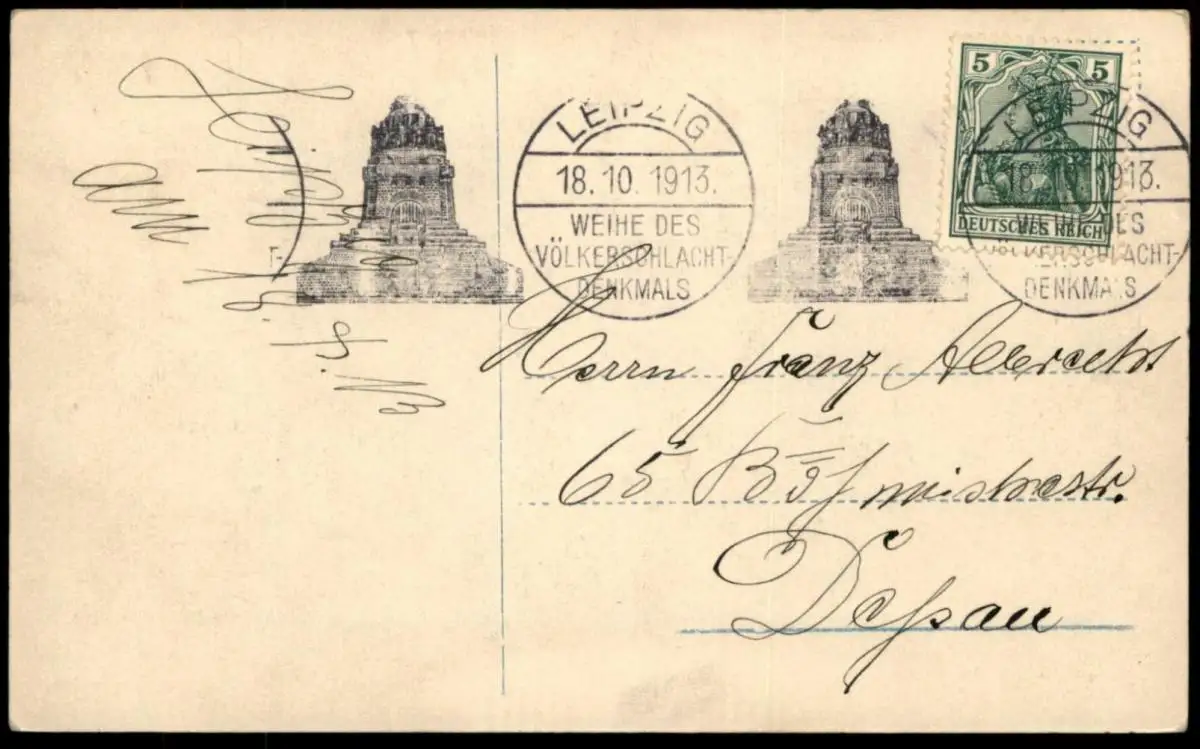 LEIPZIG
18. 10. 1913.
WEIHE DES
VÖLKERSCHLACHT-
DENKMALS
5 5
DEUTSCHES REICH
LEIPZIG
18. 1913.
WEIHE DES
VÖLKERSCHLACHT-
DENKMALS
Herrn Franz Albrecht
65
Dessau